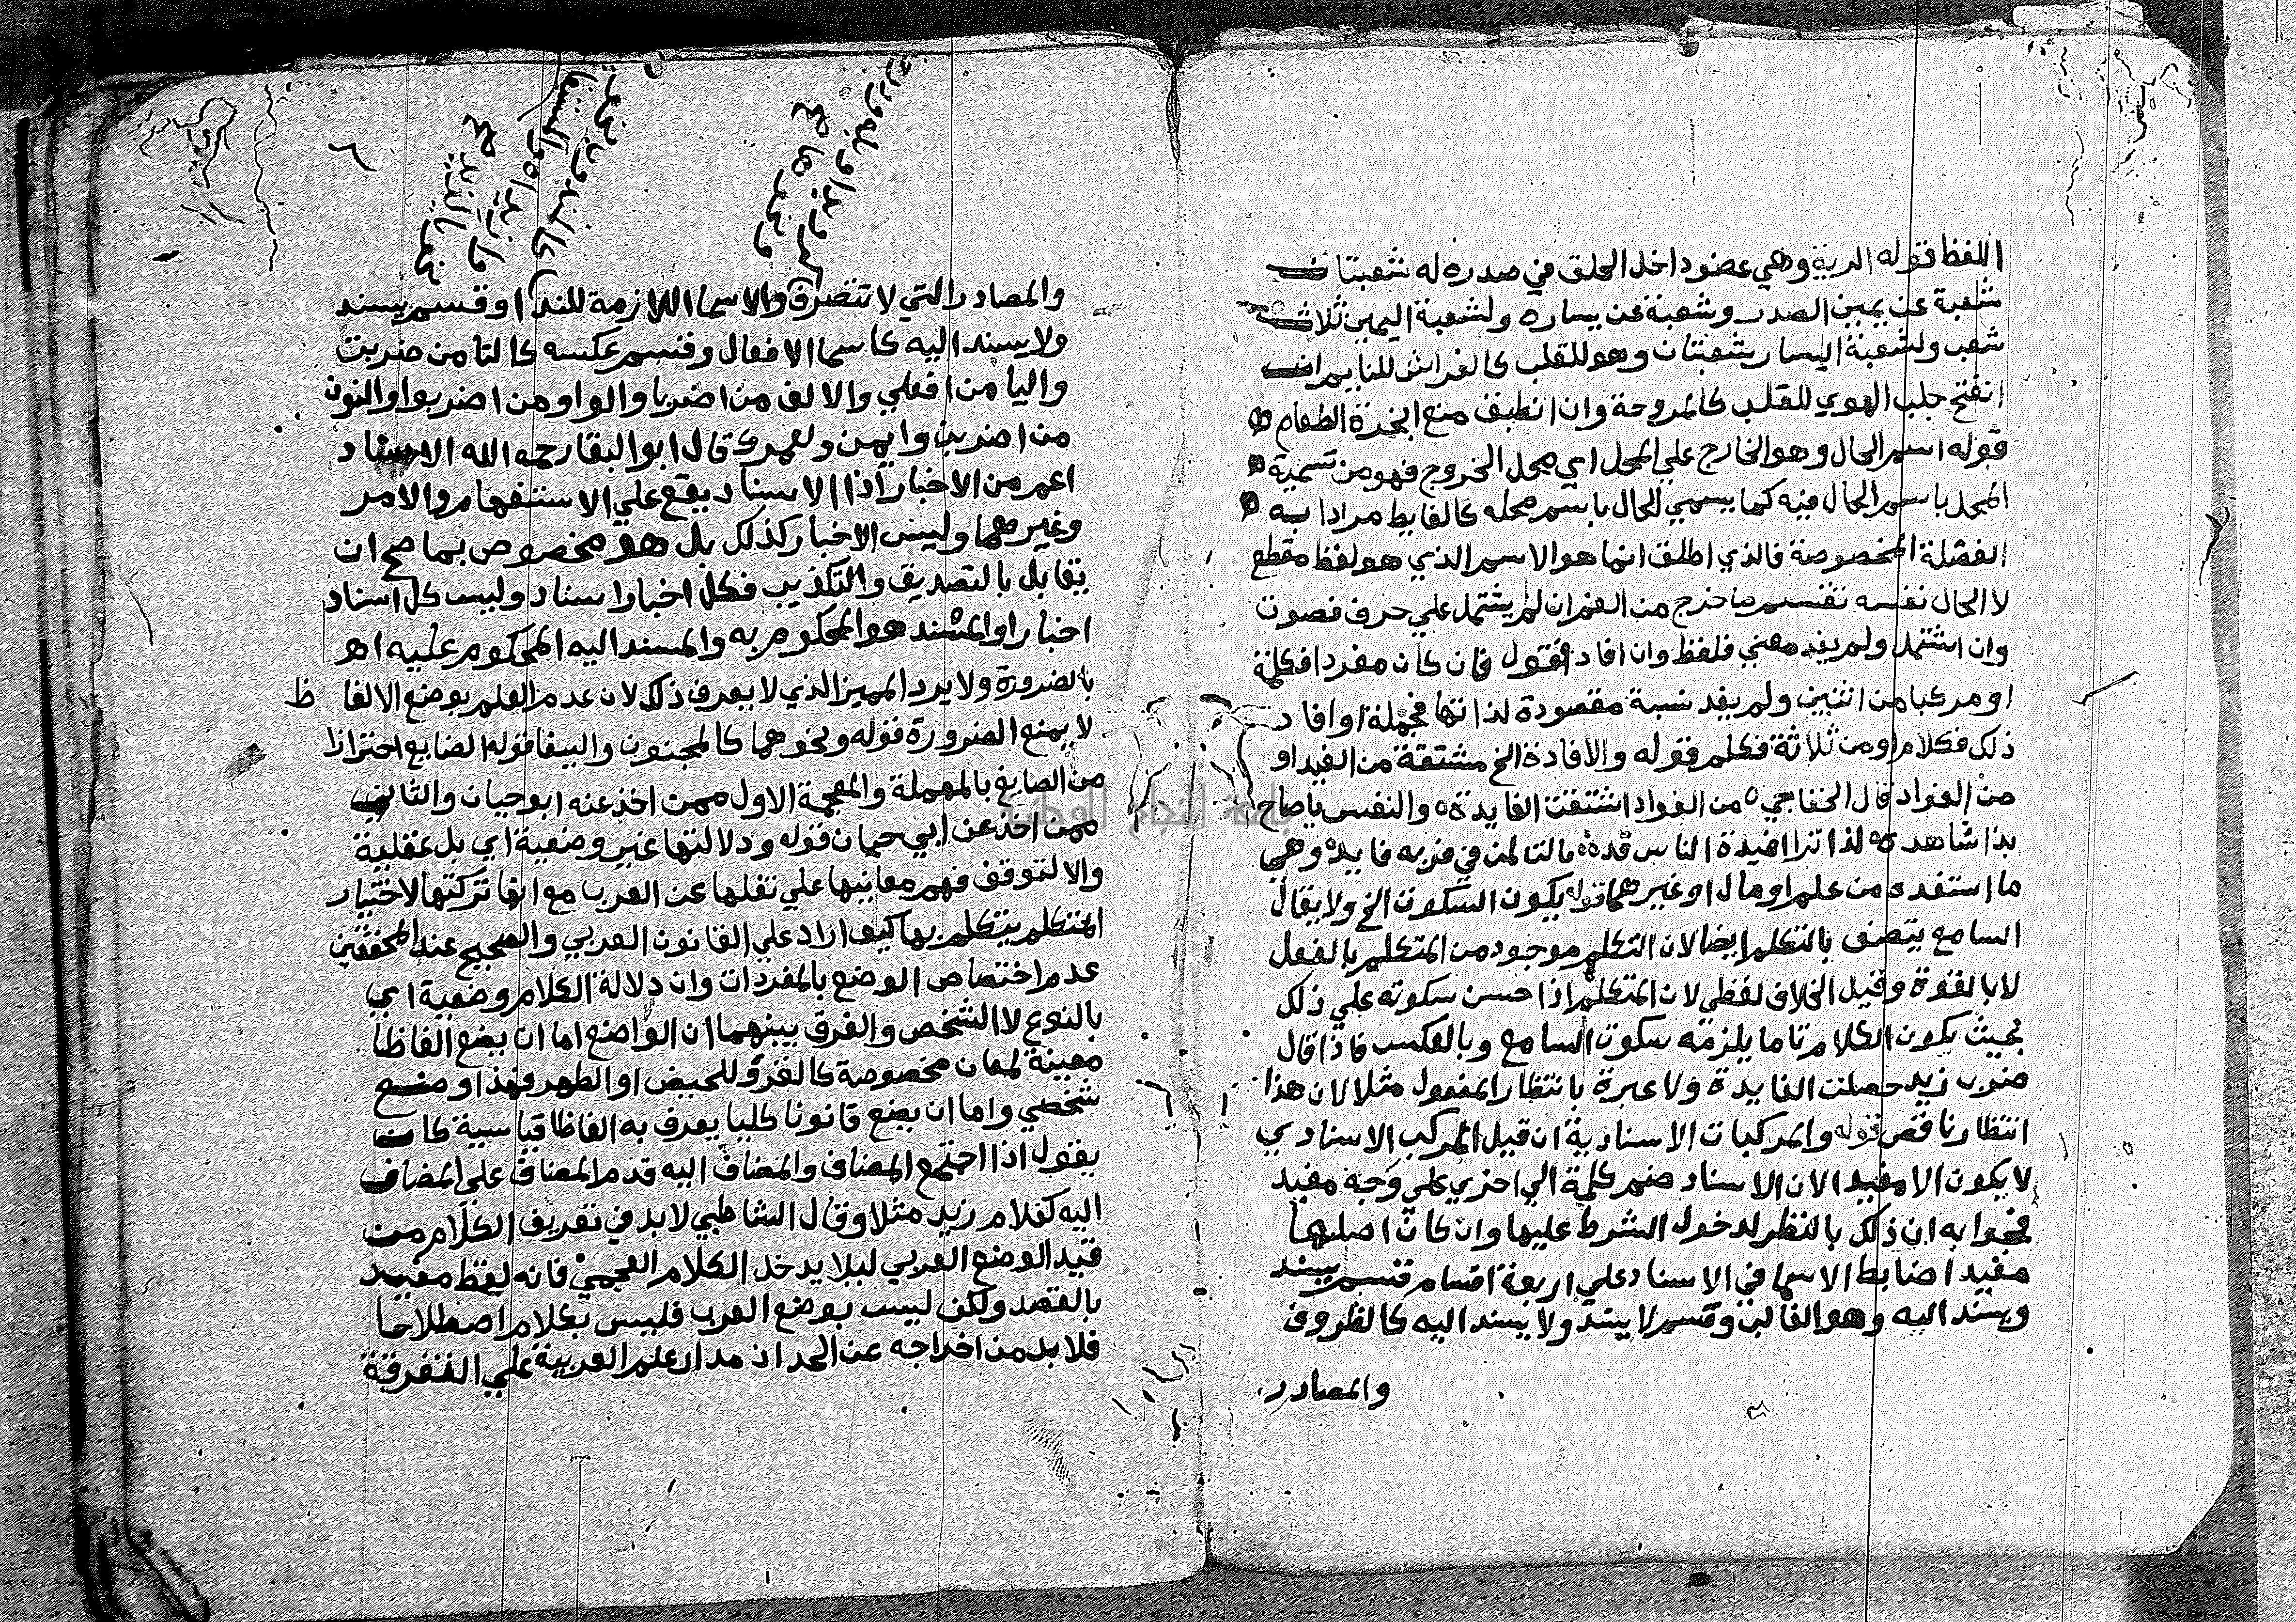 اللفظ قوله الرية وهي عضو داخل الحلق في صدره له شعبتان
شعبة عن يمين الصدر وشعبة عن يساره ولشعبة اليمين ثلاث
شعب ولشعبة اليسار شعبتان وهو للقلب كالفراش للنايم ان
انفتح جلب الهوي للقلب كالمروحة وان انطبق منع ابخرة الطعام
قوله اسم الحال وهو الخارج علي المحل اي محل الخروج فهو من تسمية
المحل باسم الحال فيه كما يسمي الحال باسم محله كالغايط مرادا به
الفضلة المخصوصة فالذي اطلق انما هو الاسم الذي هو لفظ مقطع
لا الحال نفسه تقسيم ما خرج من الفم ان لم يشتمل علي حرف فصوت
وان اشتمل ولم يفد معني فلفظ وان افاد فقول فان كان مفردا فكلمة
او مركبا من اثنين ولم يفد نسبة مقصودة لذاتها فجملة او افاد
ذلك فكلام او من ثلاثة فكلم قوله والافادة الخ مشتقة من الفيد او
من الفواد قال الخفاجي من الفواد اشتقت الفايدة والنفس ياصاح
بذا شاهدة لذا ترا افيدة الناس قد مالت لمن في قربه فايده وهي
ما استفده من علم او مال او غيرهما قوله يكون السكوت الخ ولا يقال
السامع يتصف بالتكلم ايضا لان التكلم موجود من المتكلم بالفعل
لا بالقوة وقيل الخلاف لفظي لان المتكلم اذا حسن سكوته علي ذلك
بحيث يكون الكلام تاما يلزمه سكوت السامع وبالعكس فاذا قال
ضرب زيد حصلت الفايدة ولا عبرة بانتظار المفعول مثلا لان هذا
انتظار ناقص قوله والمركبات الاسنادية ان قيل المركب الاسنادي
لا يكون الا مفيدا لان الاسناد ضم كلمة الي اخري علي وجه مفيد
فجوابه ان ذلك بالنظر لدخول الشرط عليها وان كان اصلهما
مفيدا ضابط الاسما في الاسناد علي اربعة اقسام قسم يسند
ويسند اليه وهو الغالب وقسم لا يسند ولا يسند اليه كالظروف
والمصادر
والمصادر التي لا تتصرف والاسما اللازمة للندا وقسم يسند
ولا يسند اليه كاسما الافعال وقسم عكسه كالتا من ضربت
واليا من افعلي والالف من اضربا والواو من اضربوا والنون
من اضربن وايمن ولعمرك قال ابو البقا رحمه الله الاسناد
اعم من الاخبار اذ الاسناد يقع علي الاستفهام والامر
وغيرهما وليس الاخبار كذلك بل هو مخصوص بما صح ان
يقابل بالتصديق والتكذيب فكل اخبار اسناد وليس كل اسناد
اخبارا والمسند هو المحكوم به والمسند اليه المحكوم عليه اه
بالضرورة ولا يرد المميز الذي لا يعرف ذلك لان عدم العلم بوضع الالفاظ
لا يمنع الضرورة قوله ونحوهما كالمجنون والببغا قوله الضايع احترازا
من الصايغ بالمهملة والمعجمة الاول ممن اخذ عنه ابو حيان والثاني
ممن اخذ عن ابي حيان قوله ودلالتها غير وضعية اي بل عقلية
والا لتوقف فهم معانيها علي نقلها عن العرب مع انها تركتها لاختيار
المتكلم يتكلم بها كيف اراد علي القانون العربي والصحيح عند المحققين
عدم اختصاص الوضع بالمفردات وان دلالة الكلام وضعية اي
بالنوع لا الشخص والفرق بينهما ان الواضع اما ان يضع الفاظا
معينة لمعان مخصوصة كالقرؤ للحيض او الطهر فهذا وضع
شخصي واما ان يضع قانونا كليا يعرف به الفاظا قياسية كان
يقول اذا اجتمع المضاف والمضاف اليه قدم المضاف علي المضاف
اليه كغلام زيد مثلا وقال الشاطبي لا بد في تعريف الكلام من
قيد الوضع العربي ليلا يدخل الكلام العجمي فانه لفظ مفيد
بالقصد ولكن ليس بوضع العرب فليس بكلام اصطلاحا
فلا بد من اخراجه عن الحد اذ مدار علم العربية علي التفرقة